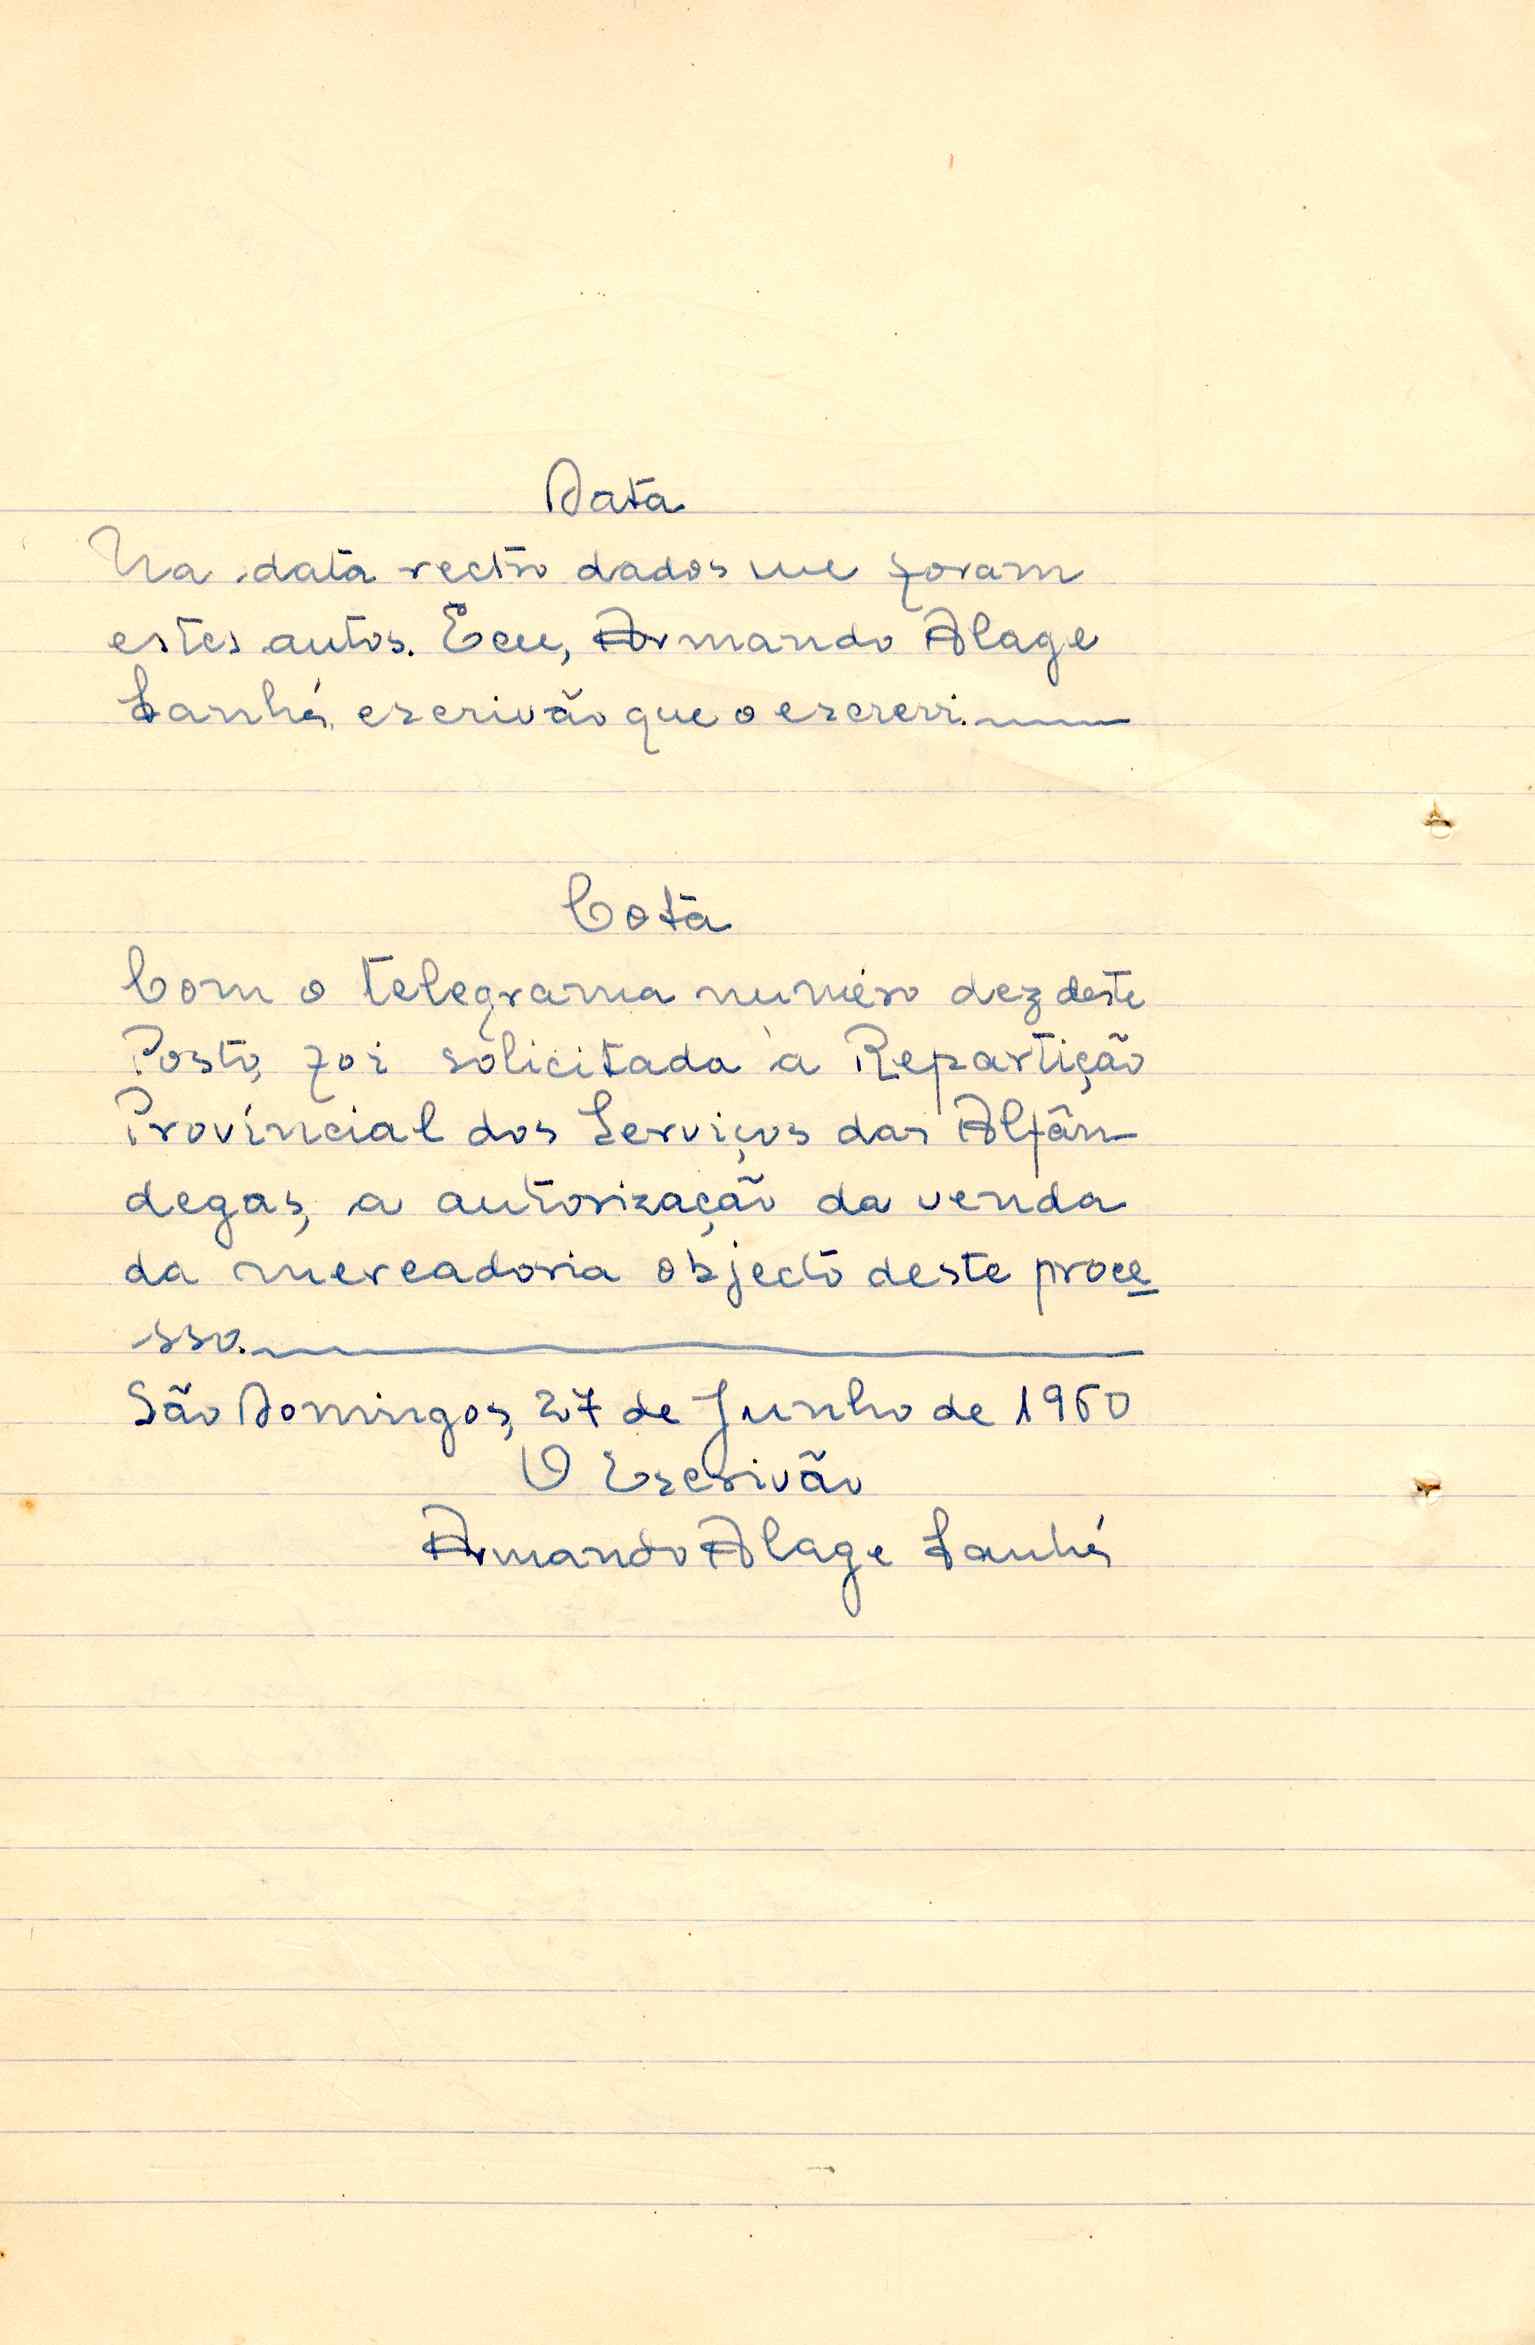 Data
Na data rectro dados me foram
estes autos. E eu, Armando Alage
Sanhá, escrivão que o escrevi.
Cota
Com o telegrama numéro dez deste
Posto, foi solicitada à Repartição
Província l dos Serviços das Alfân
degas, a autorização da venda
da mercadoria objecto deste proce
sso.
São Domingos, 27 de Junho de 1960
O Escrivão
Armando Alage Sanhá